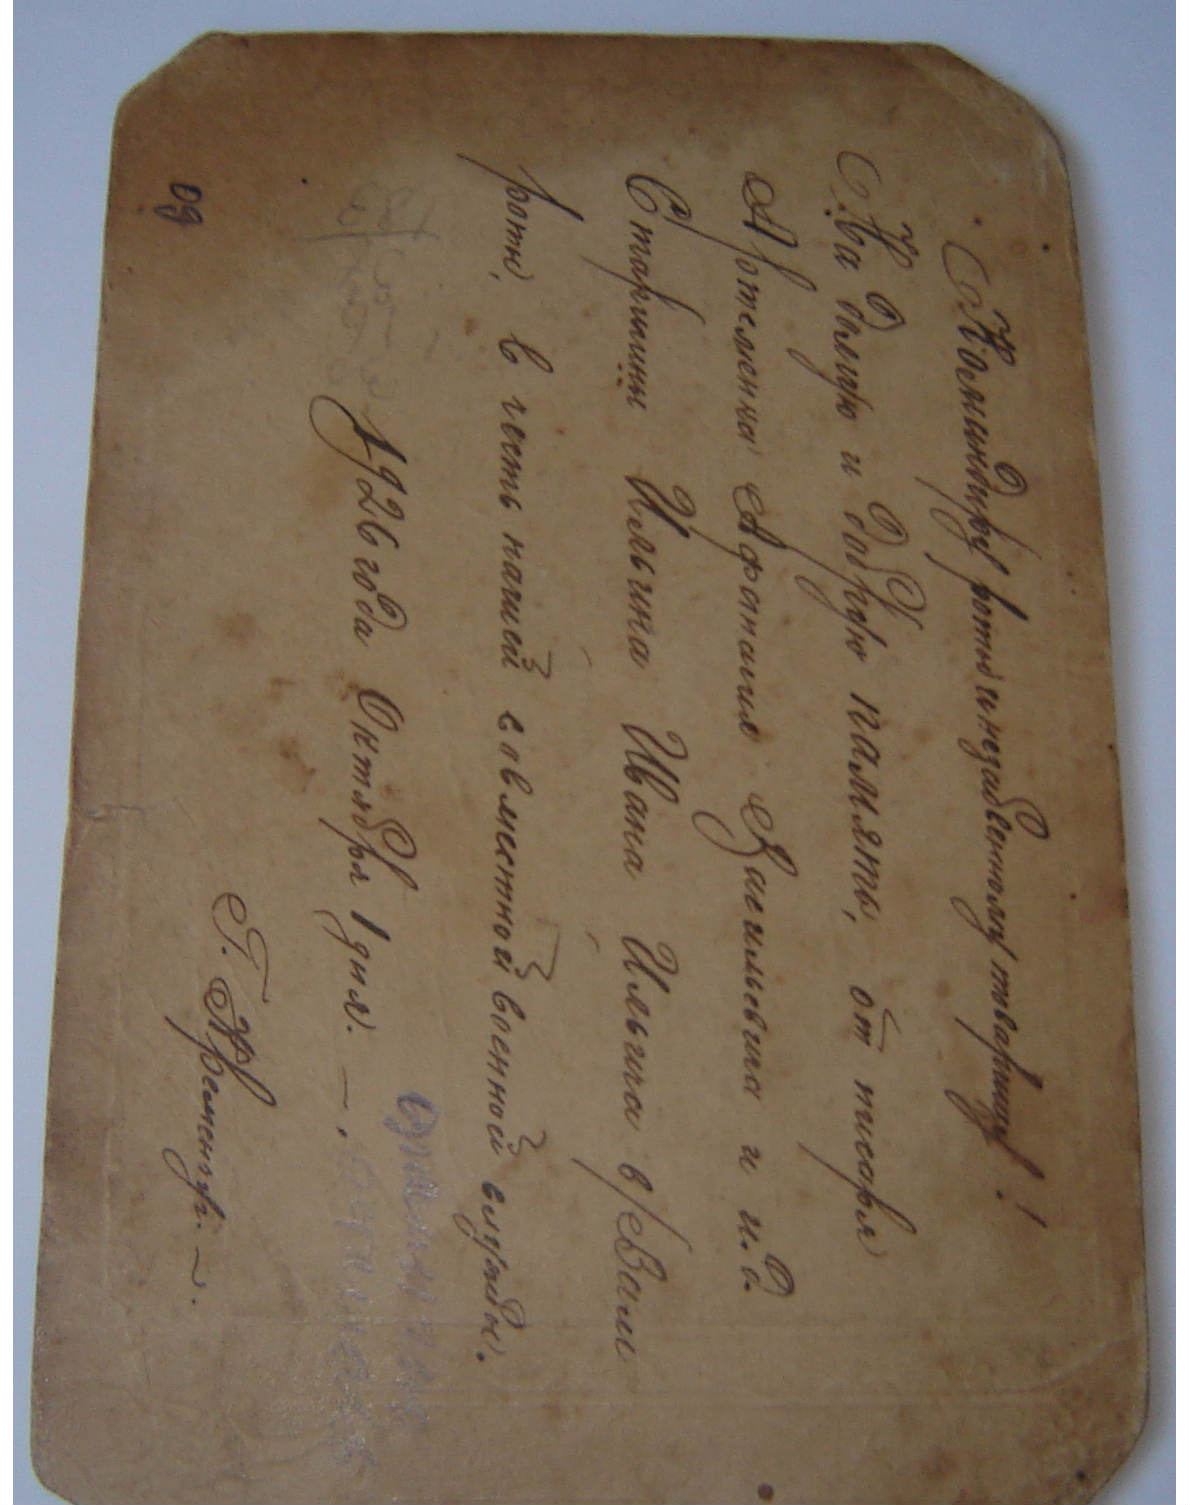 Командиру роты и незабвенному товарищу!
На долгую и добрую память, от писаря
Артеменка Афанасия Васильевича и и.д.
Старшины Ильина Ивана Ильича в/Вам
роты, в честь нашей совместной военной службы.
1926 года Октября 1 дня. —.
Г. Кременчуг. —.